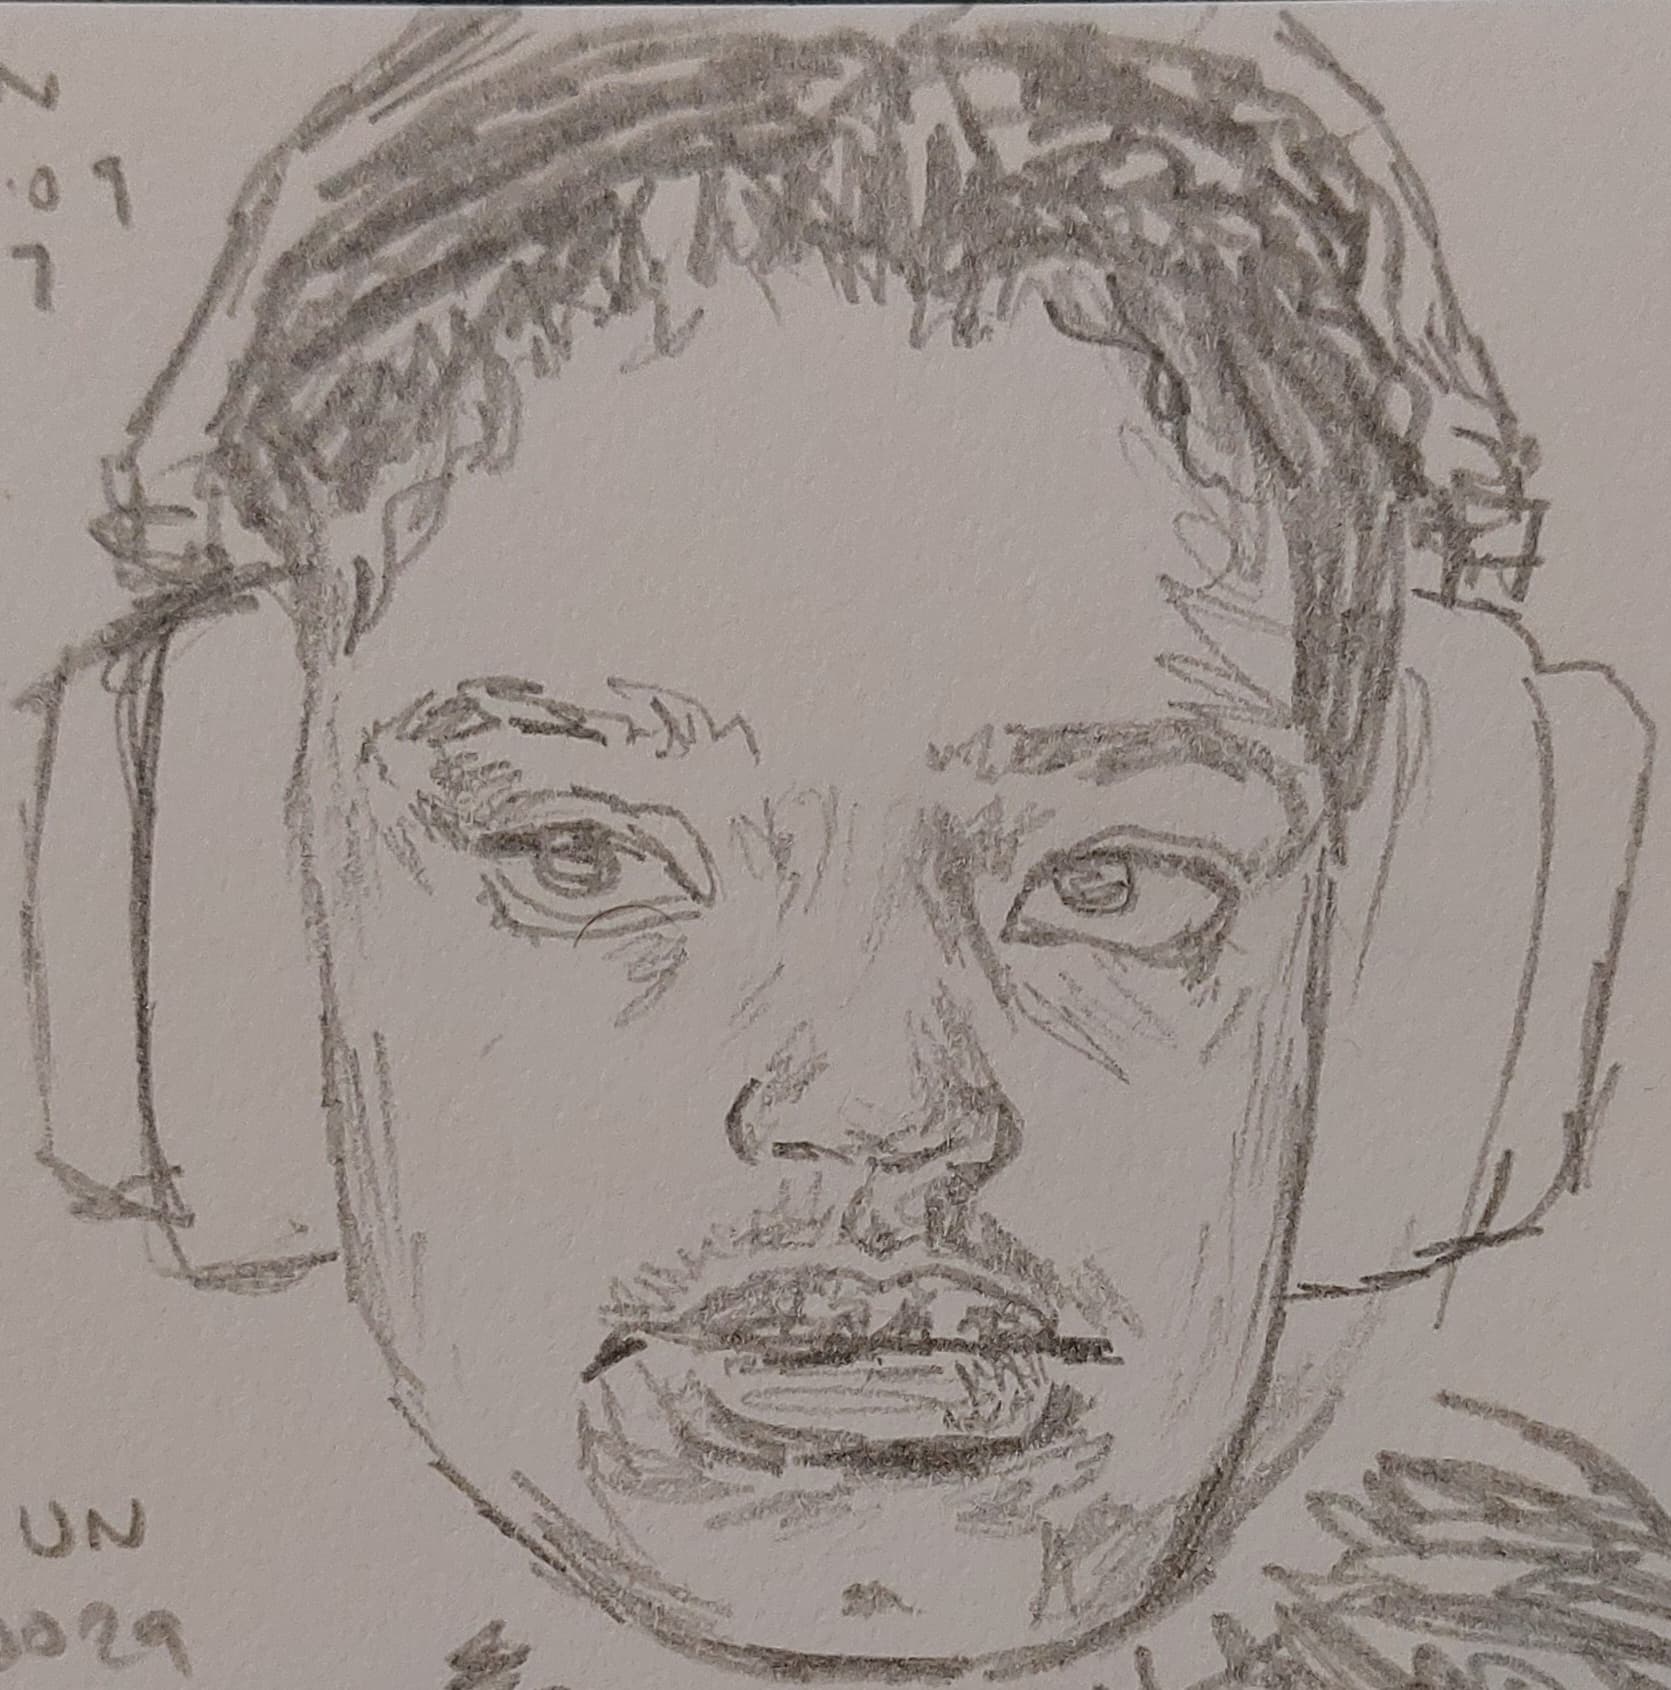 N
09
7
UN
0029